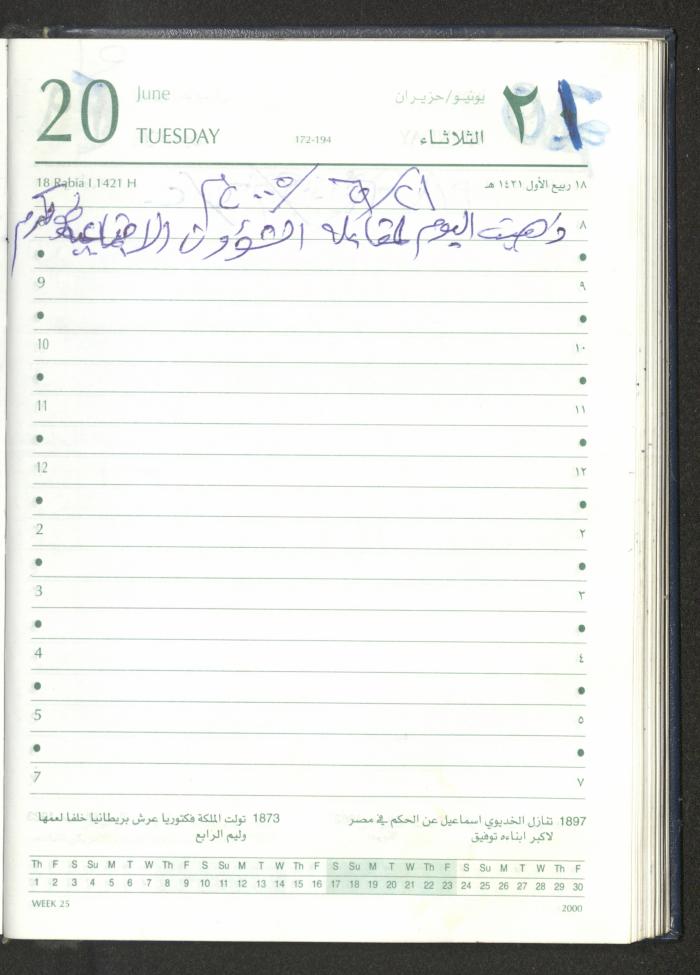 20 June يونيو/حزيران ٢١
TUESDAY 172-194 الثلاثاء
18 Rabia I 1421 H ١٨ ربيع الأول ١٤٢١ هـ
٢٠٠٥م
8 ذهبت اليوم لمقابلة الشؤون الاجتماعية طولكرم ٨
9 ٩
10 ١٠
11 ١١
12 ١٢
2 ٢
3 ٣
4 ٤
5 ٥
7 ٧
1897 تنازل الخديوي اسماعيل عن الحكم في مصر
لاكبر ابناءه توفيق
1873 تولت الملكة فكتوريا عرش بريطانيا خلفا لعمها
وليم الرابع
Th F S Su M T W Th F S Su M T W Th F S Su M T W Th F S Su M T W Th F
1 2 3 4 5 6 7 8 9 10 11 12 13 14 15 16 17 18 19 20 21 22 23 24 25 26 27 28 29 30
WEEK 25 2000